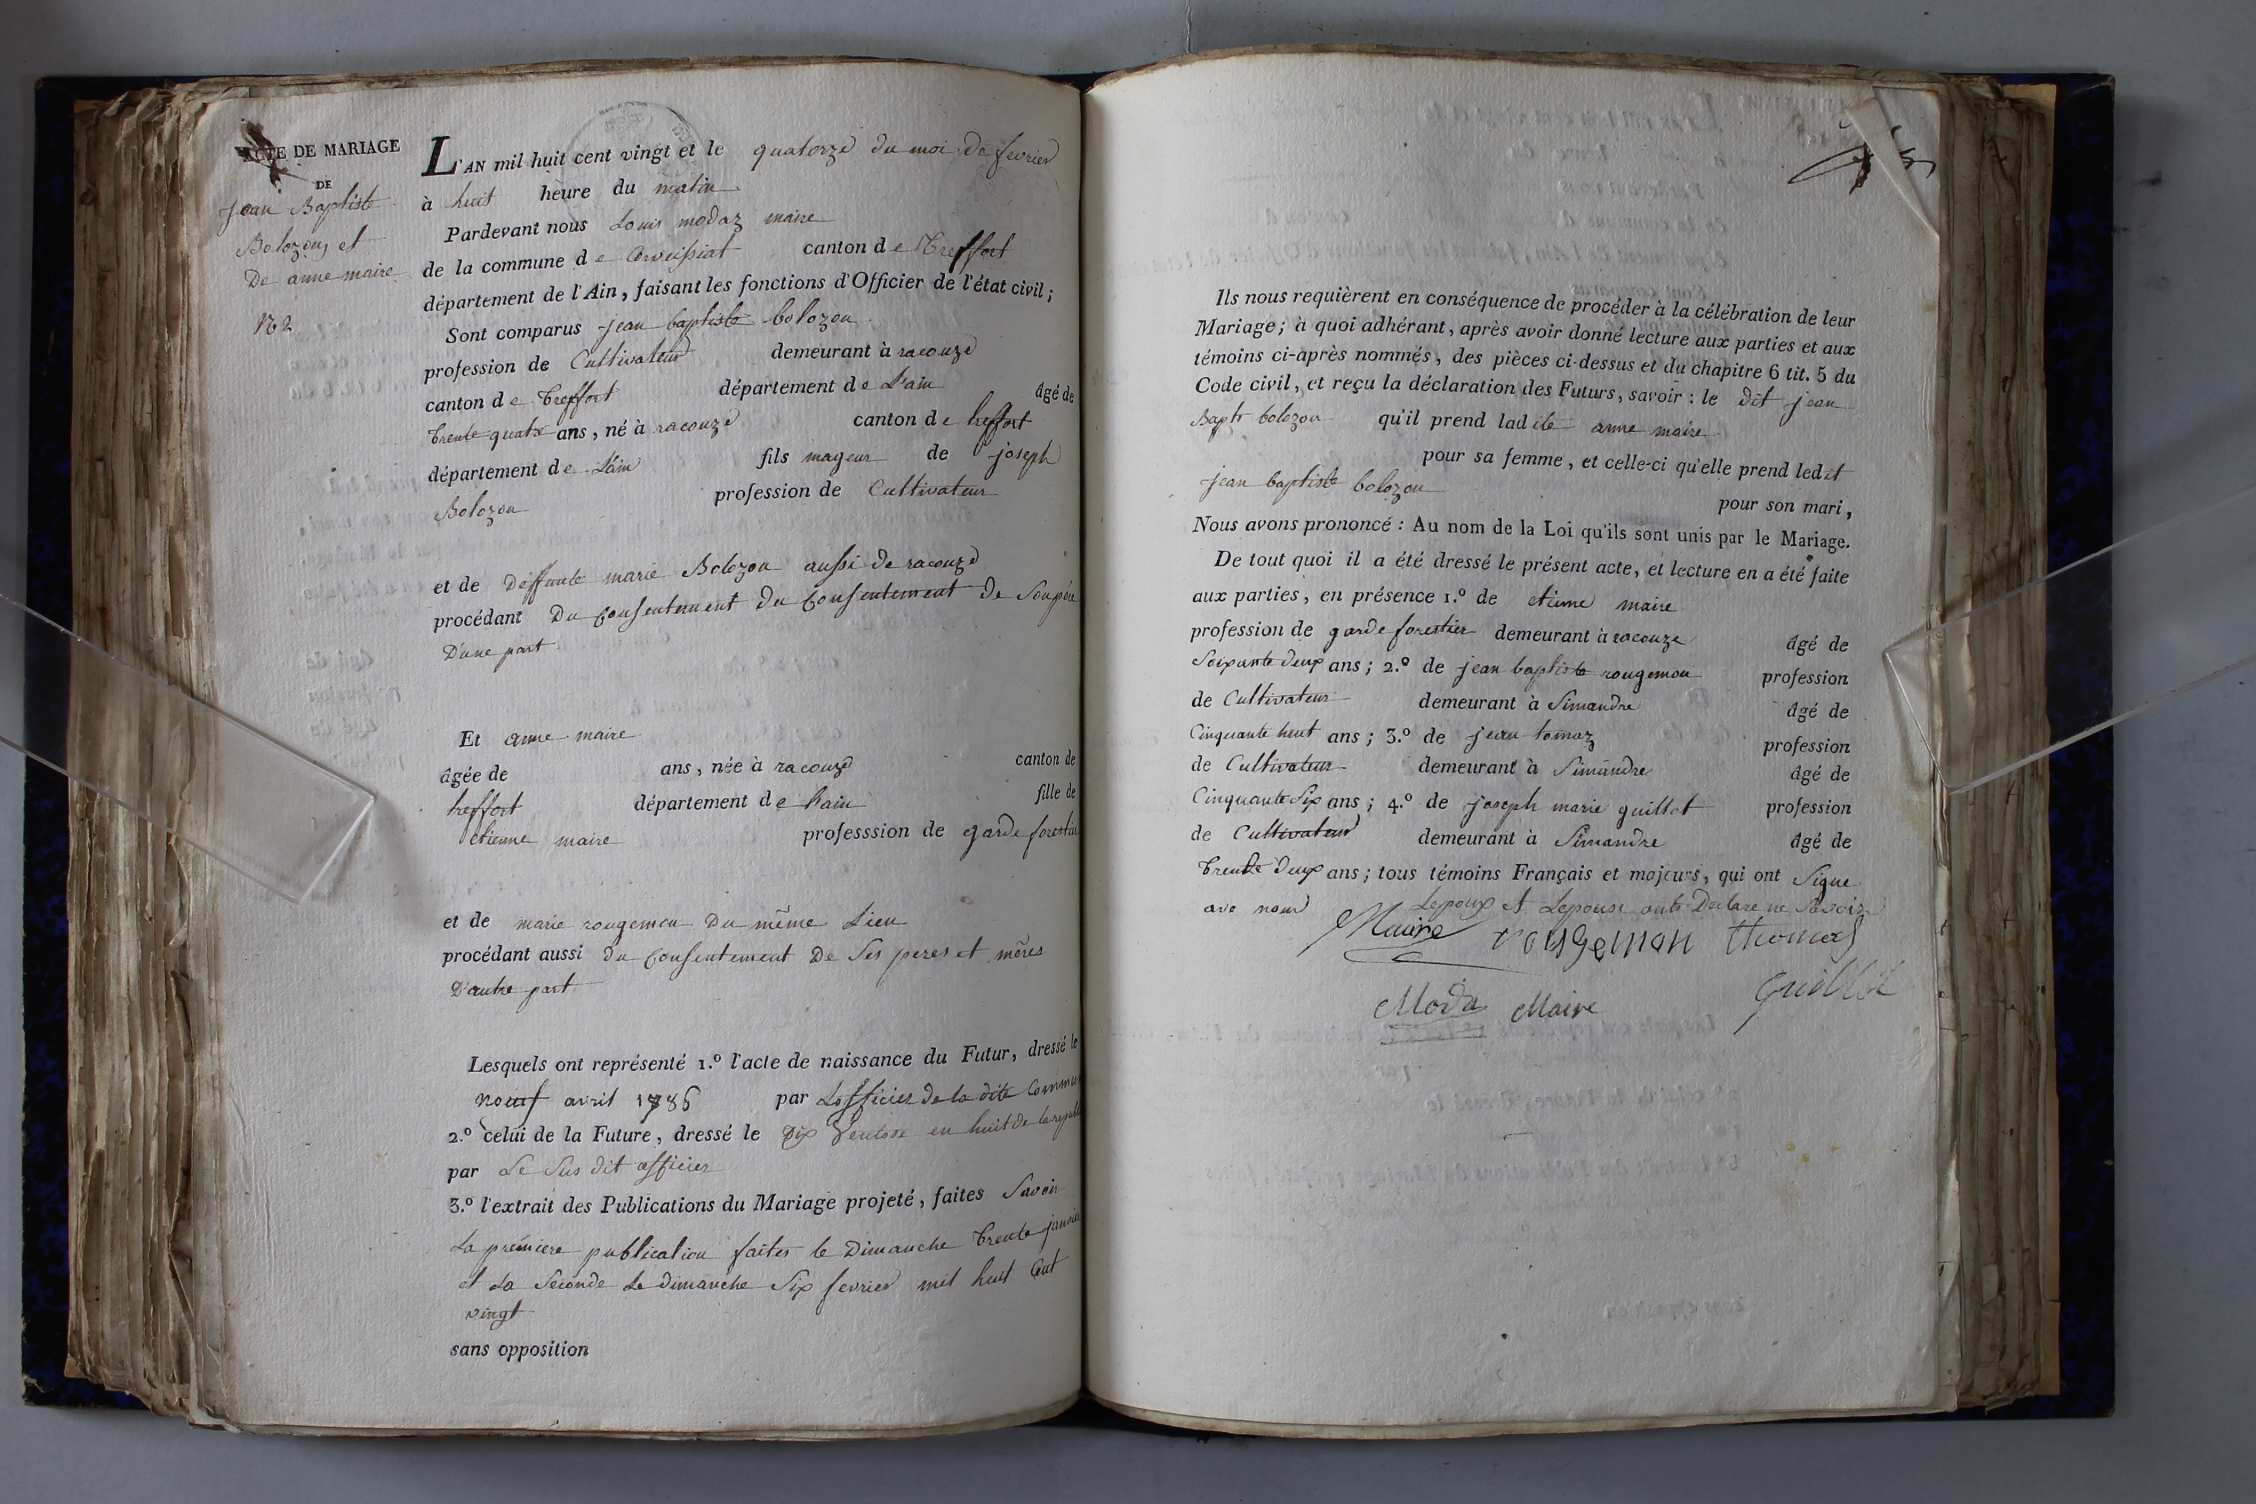 ACTE DE MARIAGE
DE
Jean Baptiste
Bolozon et
De anne maire
N 2
L'AN mil huit cent vingt et le quatorze du moi de fevrier
à huit heure du matin
Pardevant nous Louis modaz maire
de la commune de Corveissiat canton de Treffort
département de l'Ain, faisant les fonctions d'Officier de l'état civil;
Sont comparus jean baptiste bolozon
profession de Cultivateur demeurant à racouze
canton de Treffort département de L'ain âgé de
trente quatre ans, né à racouze canton de treffort
département de L'ain fils mageur de joseph
Bolozon profession de Cultivateur
et de Deffunte marie Bolozon aussi de racouze
procédant Du Consentement du Consentement de Son père
D'une part
Et anne maire
âgée de ans, née à racouze canton de
treffort département de L'ain fille de
etienne maire professsion de garde forestier
et de marie rougemon Du même Lieu
procédant aussi du Consentement De Ses peres et mères
D'autre part
Lesquels ont représenté 1.º l'acte de naissance du Futur, dressé le
neuf avril 1786 par Lofficier de la dite Commu
2.º celui de la Future, dressé le Dix Ventose en huit de la republ
par Le Sus dit officier
3.º l'extrait des Publications du Mariage projeté, faites Savoir
La premiere publication faites le Dimanche Trente janvier
et La Seconde Le dimanche Six fevrier mil huit Cent
vingt
sans opposition
Ils nous requièrent en conséquence de procéder à la célébration de leur
Mariage; à quoi adhérant, après avoir donné lecture aux parties et aux
témoins ci-après nommés, des pièces ci-dessus et du chapitre 6 tit. 5 du
Code civil, et reçu la déclaration des Futurs, savoir: le dit jean
Bapt bolozon qu'il prend ladite anne maire
pour sa femme, et celle-ci qu'elle prend ledit
jean baptiste bolozon pour son mari,
Nous avons prononcé: Au nom de la Loi qu'ils sont unis par le Mariage.
De tout quoi il a été dressé le présent acte, et lecture en a été faite
aux parties, en présence 1.º de etienne maire
profession de garde forestier demeurant à racouze âgé de
Soixante deux ans; 2.º de jean baptiste rougemon profession
de Cultivateur demeurant à Simandre âgé de
Cinquante huit ans; 3.º de jean tomaz profession
de Cultivateur demeurant à Simandre âgé de
Cinquante Six ans; 4.º de joseph marie guillot profession
de Cultivateur demeurant à Simandre âgé de
Trente deux ans; tous témoins Français et majeurs, qui ont Signe
ave nous Lepoux et Lepouse onts Declare ne Savoir
Maire rougemon thomas
Moda Maire guillot